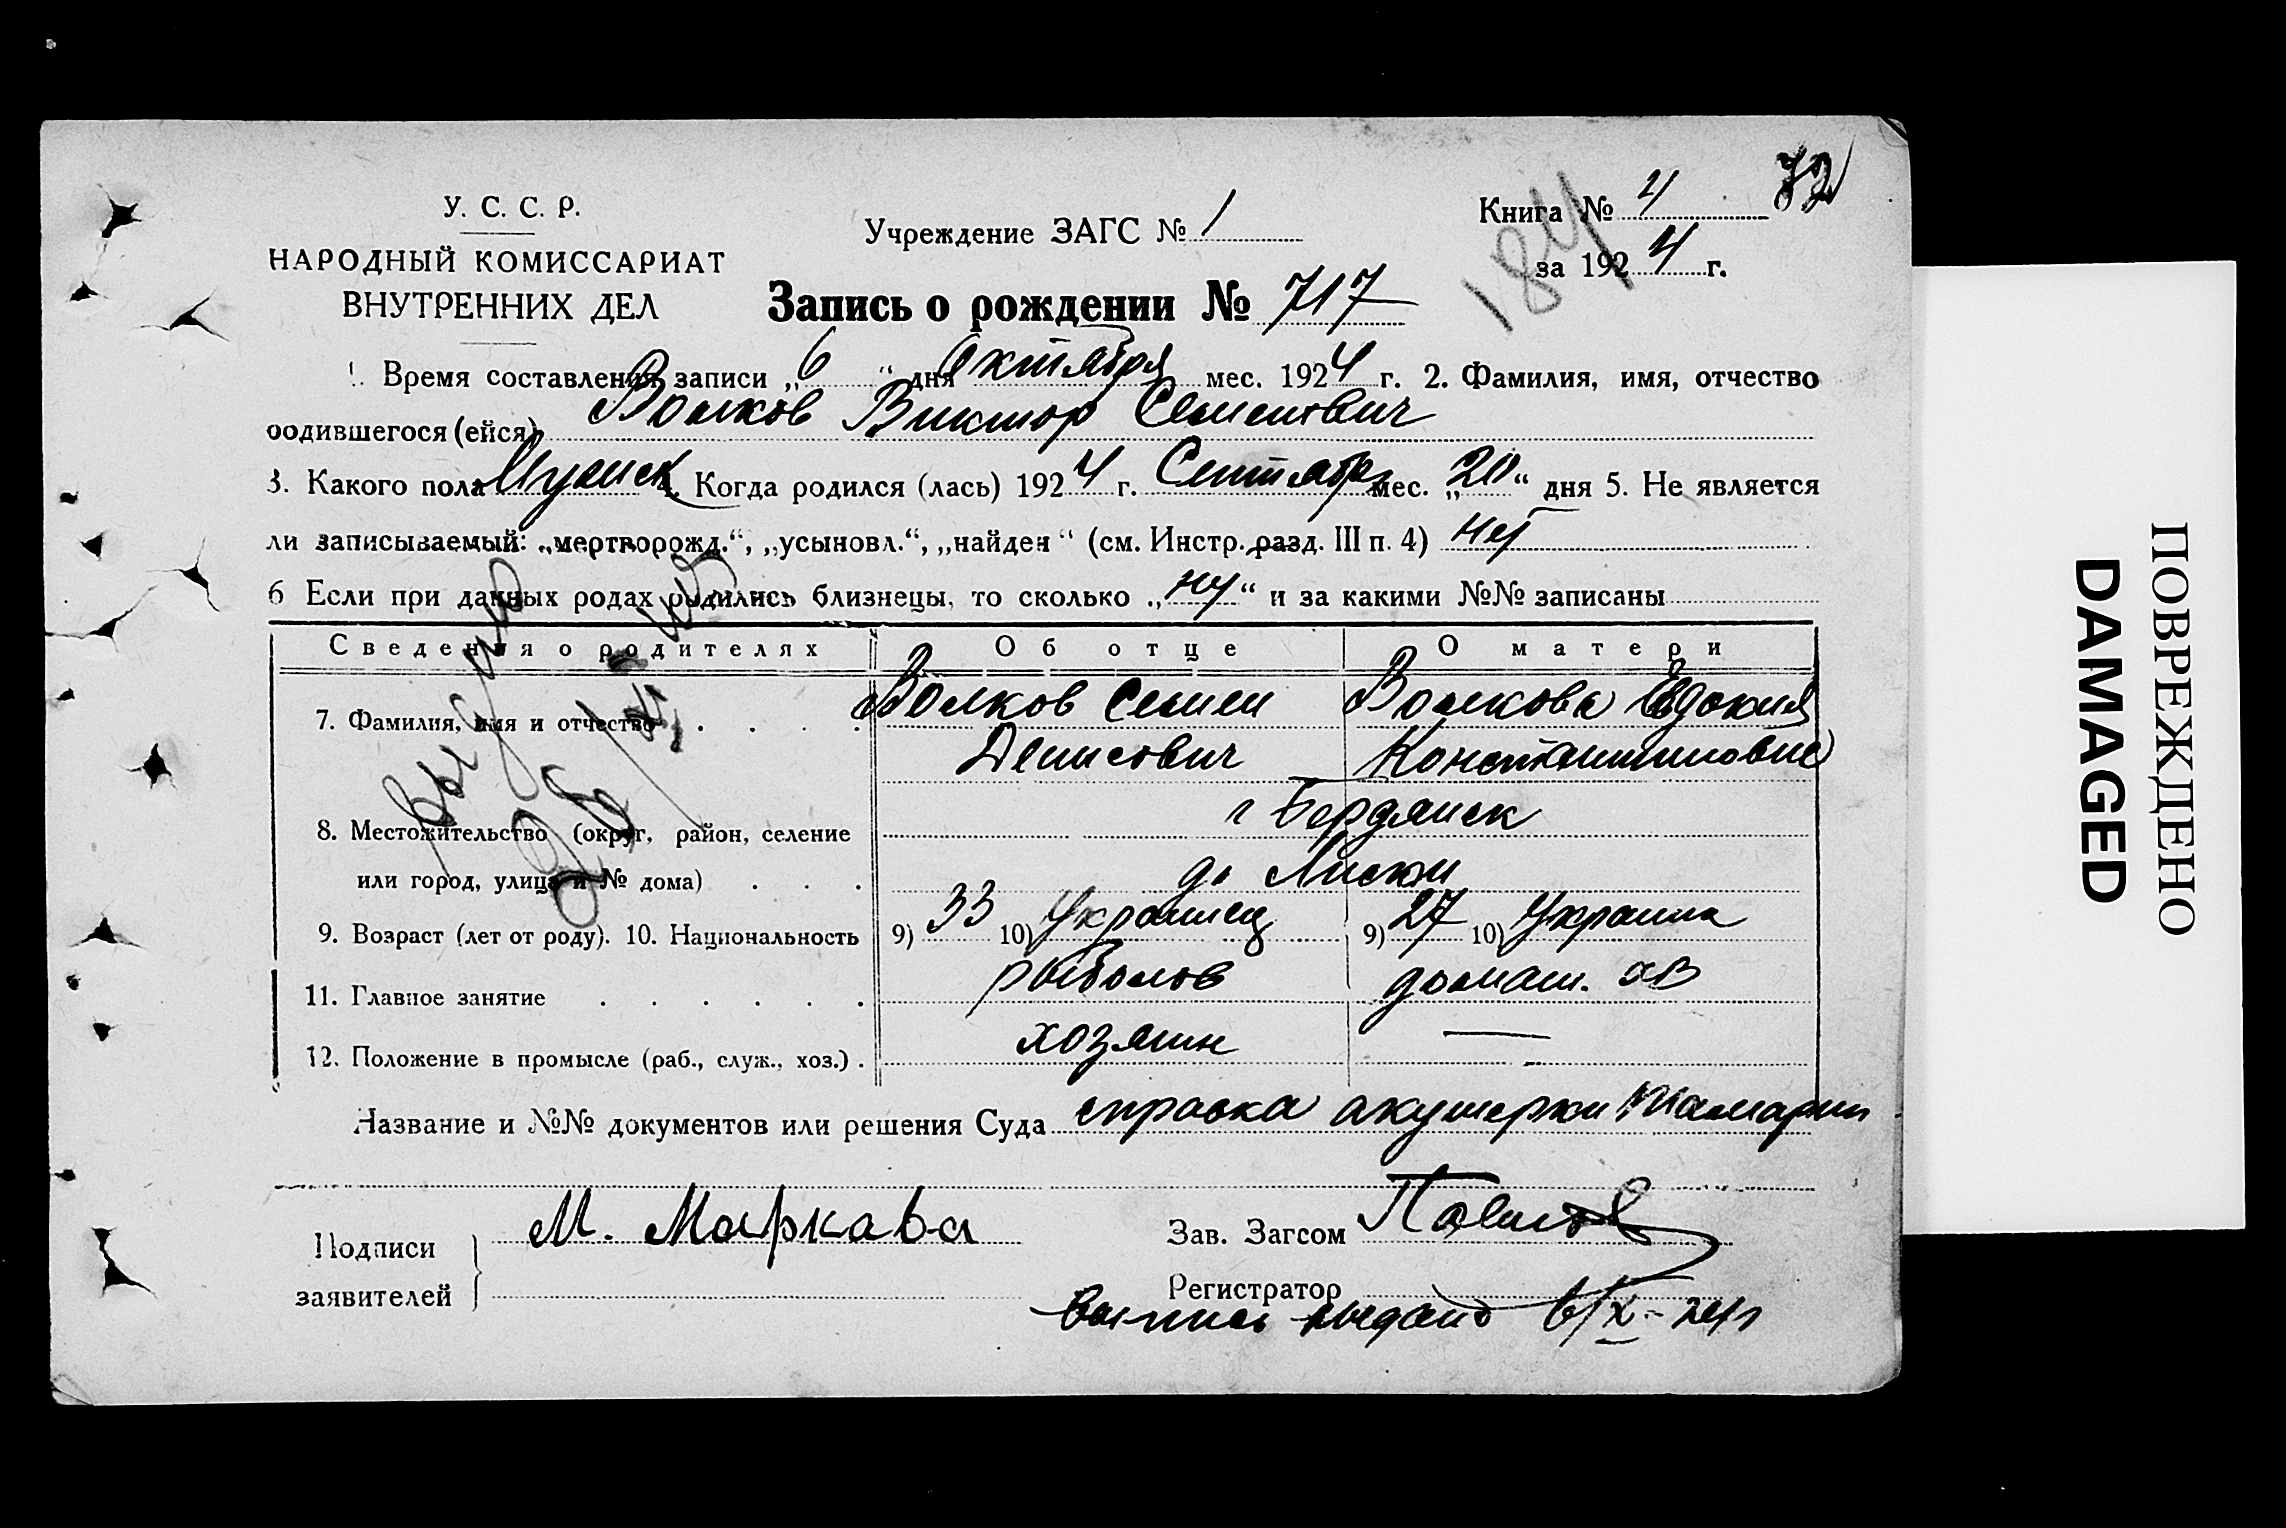 У. С. С. Р.
НАРОДНЫЙ КОМИССАРИАТ
ВНУТРЕННИХ ДЕЛ
Учреждение ЗАГС № 1
Книга № 4
72
за 1924 г.
184
Запись о рождении № 717
1. Время составления записи „6“ дня Октября мес. 1924 г. 2. Фамилия, имя, отчество
родившегося (ейся) Волков Виктор Семенович
3. Какого пола Мужск 4. Когда родился (лась) 1924 г. Сентябр мес. „20“ дня 5. Не является
ли записываемый: „мертворожд.“, „усыновл.“, „найден“ (см. Инстр. разд. III п. 4) нет
6 Если при данных родах родились близнецы, то сколько „“ и за какими №№ записаны
Сведения о родителях Об отце О матери
7. Фамилия, имя и отчество Волков Семен Волкова Евдокия
Денисович Константиновна
г Бердянск
8. Местожительство (округ, район, селение
или город, улица и № дома) Лиски
9. Возраст (лет от роду). 10. Национальность 9) 33 10) Украинец 9) 27 10) Украинк
11. Главное занятие рыболов домаш. хоз
12. Положение в промысле (раб., служ., хоз.) хозяин —
Название и №№ документов или решения Суда справка акушерки
Подписи заявителей М. Маркава
Зав. Загсом Павлов
Регистратор
выпись выдана 6/X-24г
выдано